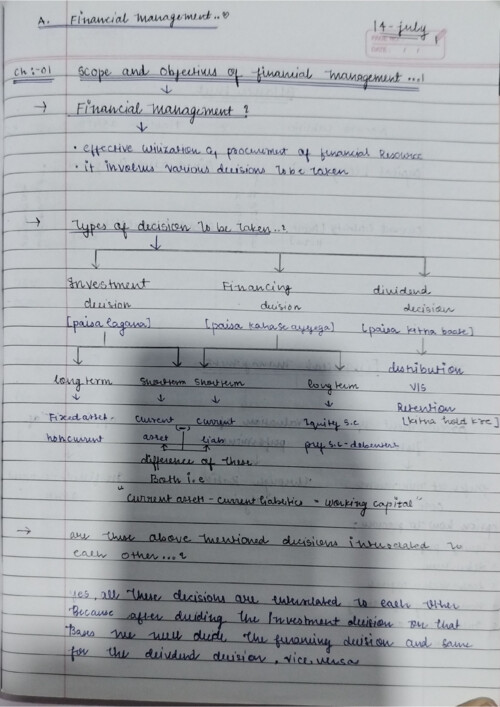 A. Financial management..
14-july
Ch:-01 Scope and objectives of financial management ...!
→ Financial management ?
• effective utilization & procurement of financial Resource
• it involves various decisions to be taken
→ Types of decision to be taken..?
Investment Financing dividend
decision decision decision
[paisa lagana] [paisa kaha se ayeyega] [paisa kitna baate]
long term short term short term long term distribution
V|S
Fixed asset- current current Equity s.c Retention
noncurrent asset (-) liab pref s.c - debenture [kitna hold kre]
difference of these
Both i.e
"current asset - current liabilities = working capital"
→ are these above mentioned decisions interrelated to
each other...?
yes, all these decisions are interrelated to each other
Because after dividing the Investment decision on that
Basis we will the financing decision and same
for the deividend decision, vice versa